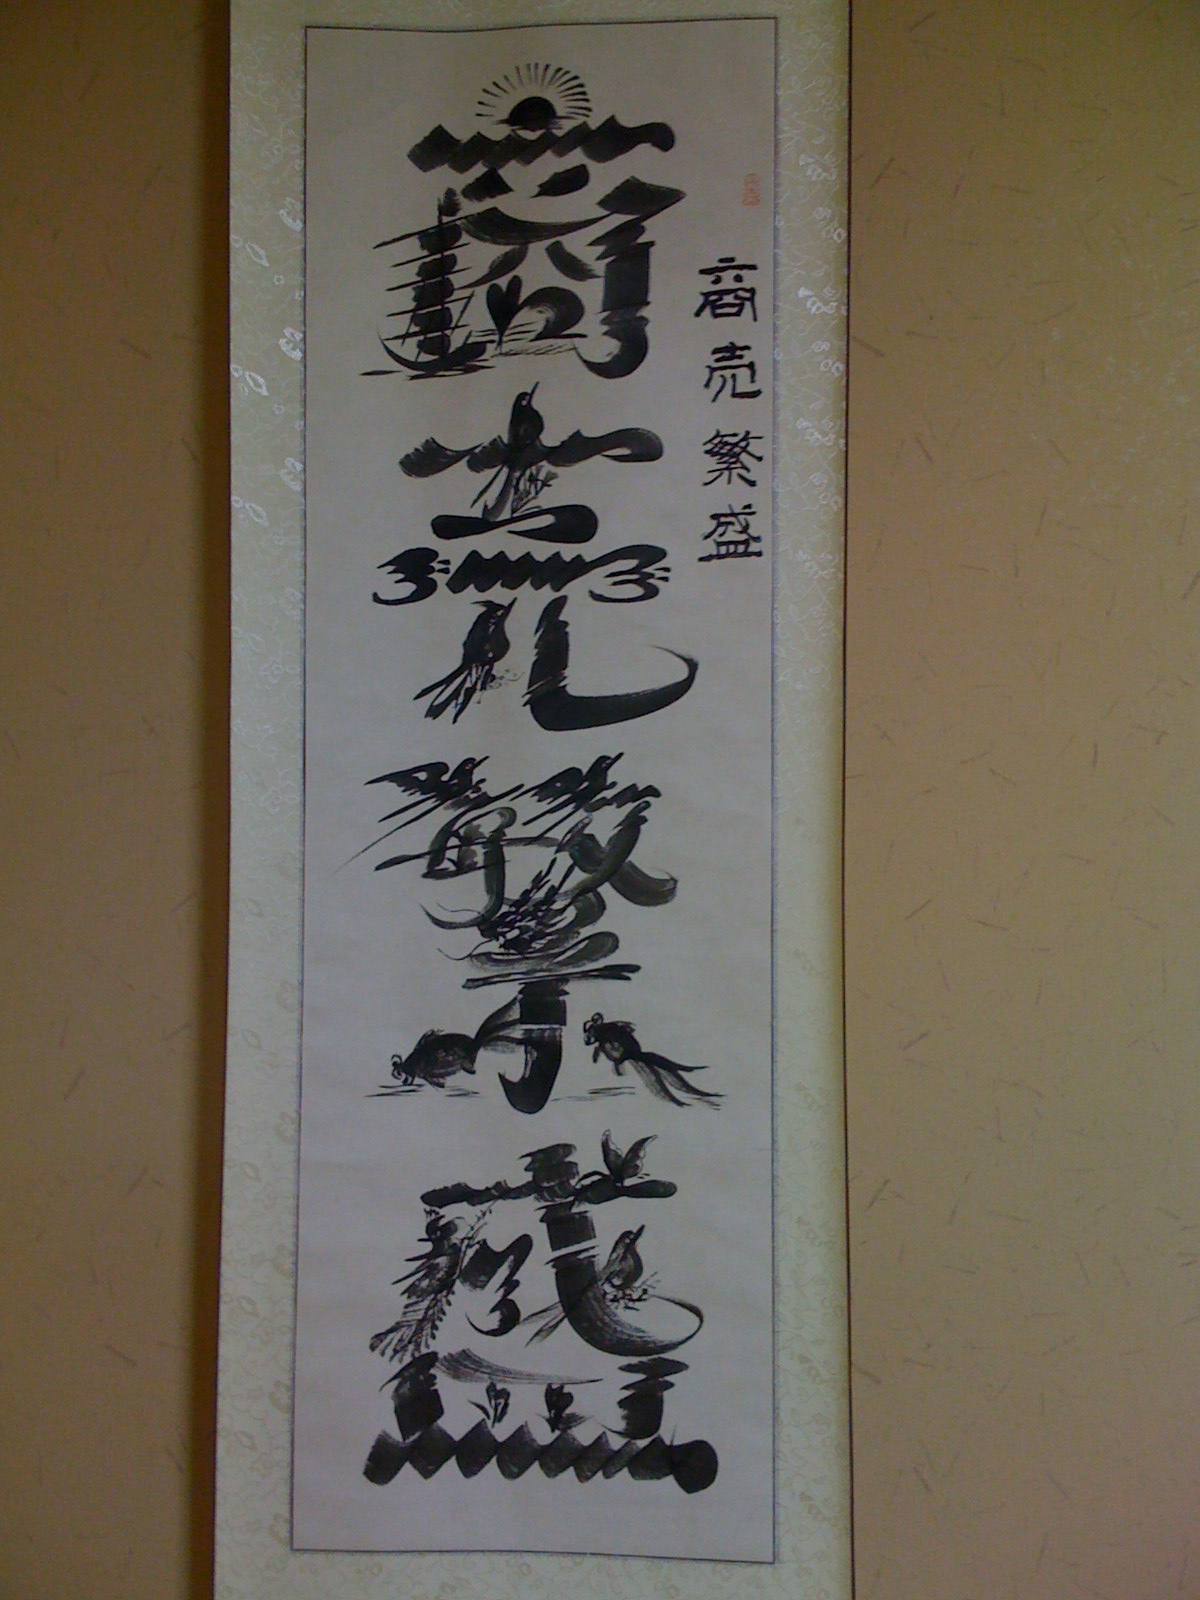 商売繁盛
商売繁盛